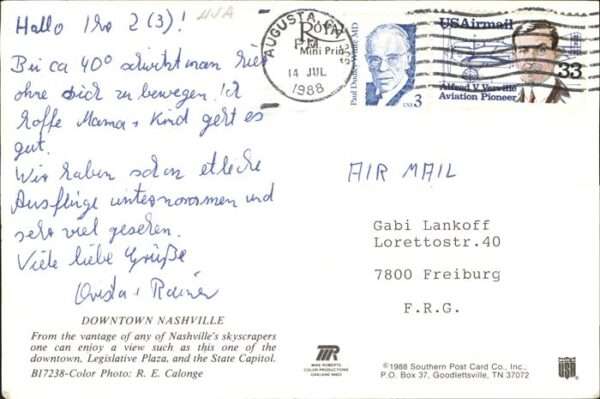 Hallo Ihr 2 (3)! USA
Bei ca 40° schwitzt man hier
ohne sich zu bewegen. Ich
hoffe Mama + Kind geht es
gut.
Wir haben schon etliche
Ausflüge unternommen und
sehr viel gesehen.
Viele liebe Grüße
Christa + Rainer
AUGUSTA, GA
PM
14 JUL
1988
Mini Prin
Paul Dudley White MD
USA 3
USAirmail
33
Alfred V. Verville
Aviation Pioneer
AIR MAIL
Gabi Lankoff
Lorettostr.40
7800 Freiburg
F.R.G.
DOWNTOWN NASHVILLE
From the vantage of any of Nashville's skyscrapers
one can enjoy a view such as this one of the
downtown, Legislative Plaza, and the State Capitol.
B17238-Color Photo: R. E. Calonge
MIKE ROBERTS
COLOR PRODUCTIONS
©1988 Southern Post Card Co., Inc.,
P.O. Box 37, Goodlettsville, TN 37072